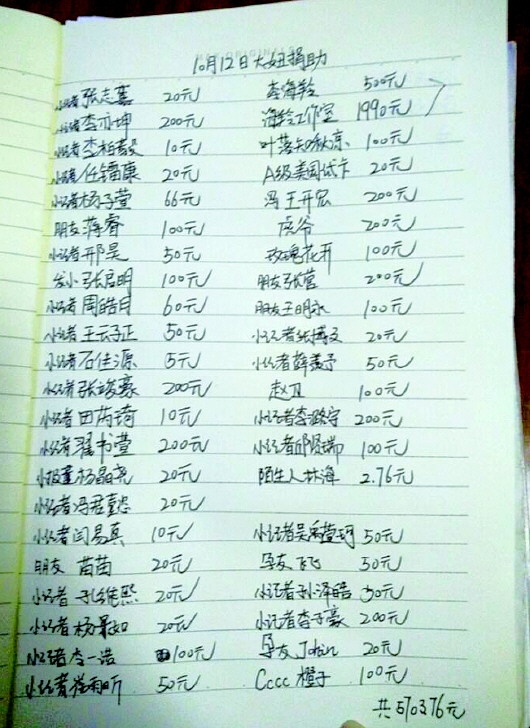 10月12日大妞捐助
小记者张志 20元 李海羚 500元
小记者李亦坤 200元 海羚工作室 1990元
小记者李柏毅 10元 叶落知秋凉 100元
小记者任镭康 20元 A级美国试卡 20元
小记者杨子萱 66元 冯王开宏 200元
朋友蒋睿 100元 虎爷 200元
小记者邢昊 50元 玫瑰花开 100元
发小张启明 100元 朋友张莹 200元
小记者周皓月 60元 朋友王明永 100元
小记者王云子正 50元 小记者张博文 20元
小记者石佳源 5元 小记者薛 予 50元
小记者张峻豪 200元 赵卫 100元
小记者田芮琦 10元 小记者李潞宇 200元
小记者翟书萱 200元 小记者邱贤瑞 100元
小报童杨晶尧 20元 陌生人林海 2.76元
小记者冯君 20元
小记者闫易真 10元 小记者吴禹萱珂 50元
朋友 苗苗 20元 孕友飞飞 50元
小记者 孔维熙 20元 小记者孙泽皓 30元
小记者杨景如 20元 小记者李子豪 200元
小记者李一诺 100元 孕友John 20元
小记者 雨昕 50元 Cccc橙子 100元
共5703.76元